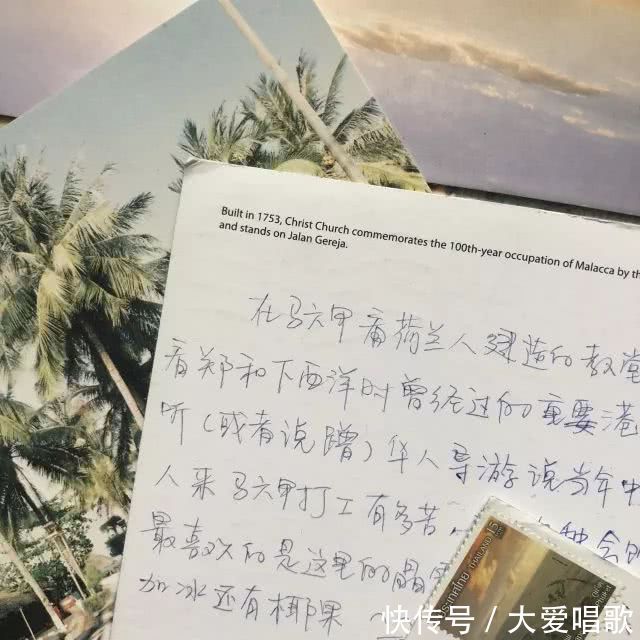 Built in 1753, Christ Church commemorates the 100th-year occupation of Malacca by the
and stands on Jalan Gereja.
在马六甲看荷兰人建造的教堂
看郑和下西洋时曾经过的重要港
听(或者说蹭)华人导游说当年
人来马六甲打工有多苦
最喜欢的是这里的
加冰还有椰果
THAILAND
快传号/大爱唱歌